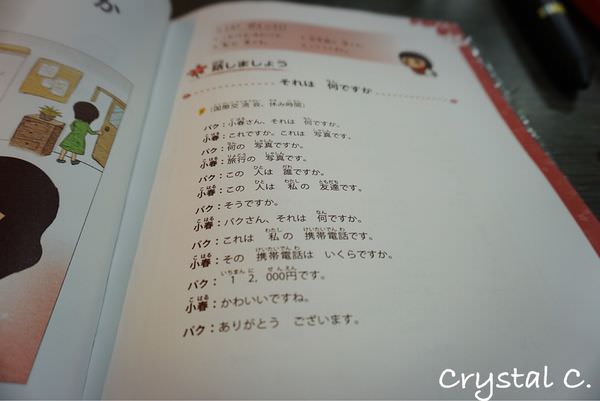 か
話しましょう
それは 何ですか
(国際交流会、休み時間)
パク：小春さん、それは 何ですか。
小春：これですか。これは 写真です。
パク：何の 写真ですか。
小春：旅行の 写真です。
パク：この 人は 誰ですか。
小春：この 人は 私の 友達です。
パク：そうですか。
小春：パクさん、それは 何ですか。
パク：これは 私の 携帯電話です。
小春：その 携帯電話は いくらですか。
パク：1 2，000円です。
小春：かわいいですね。
パク：ありがとう ございます。
Crystal C.